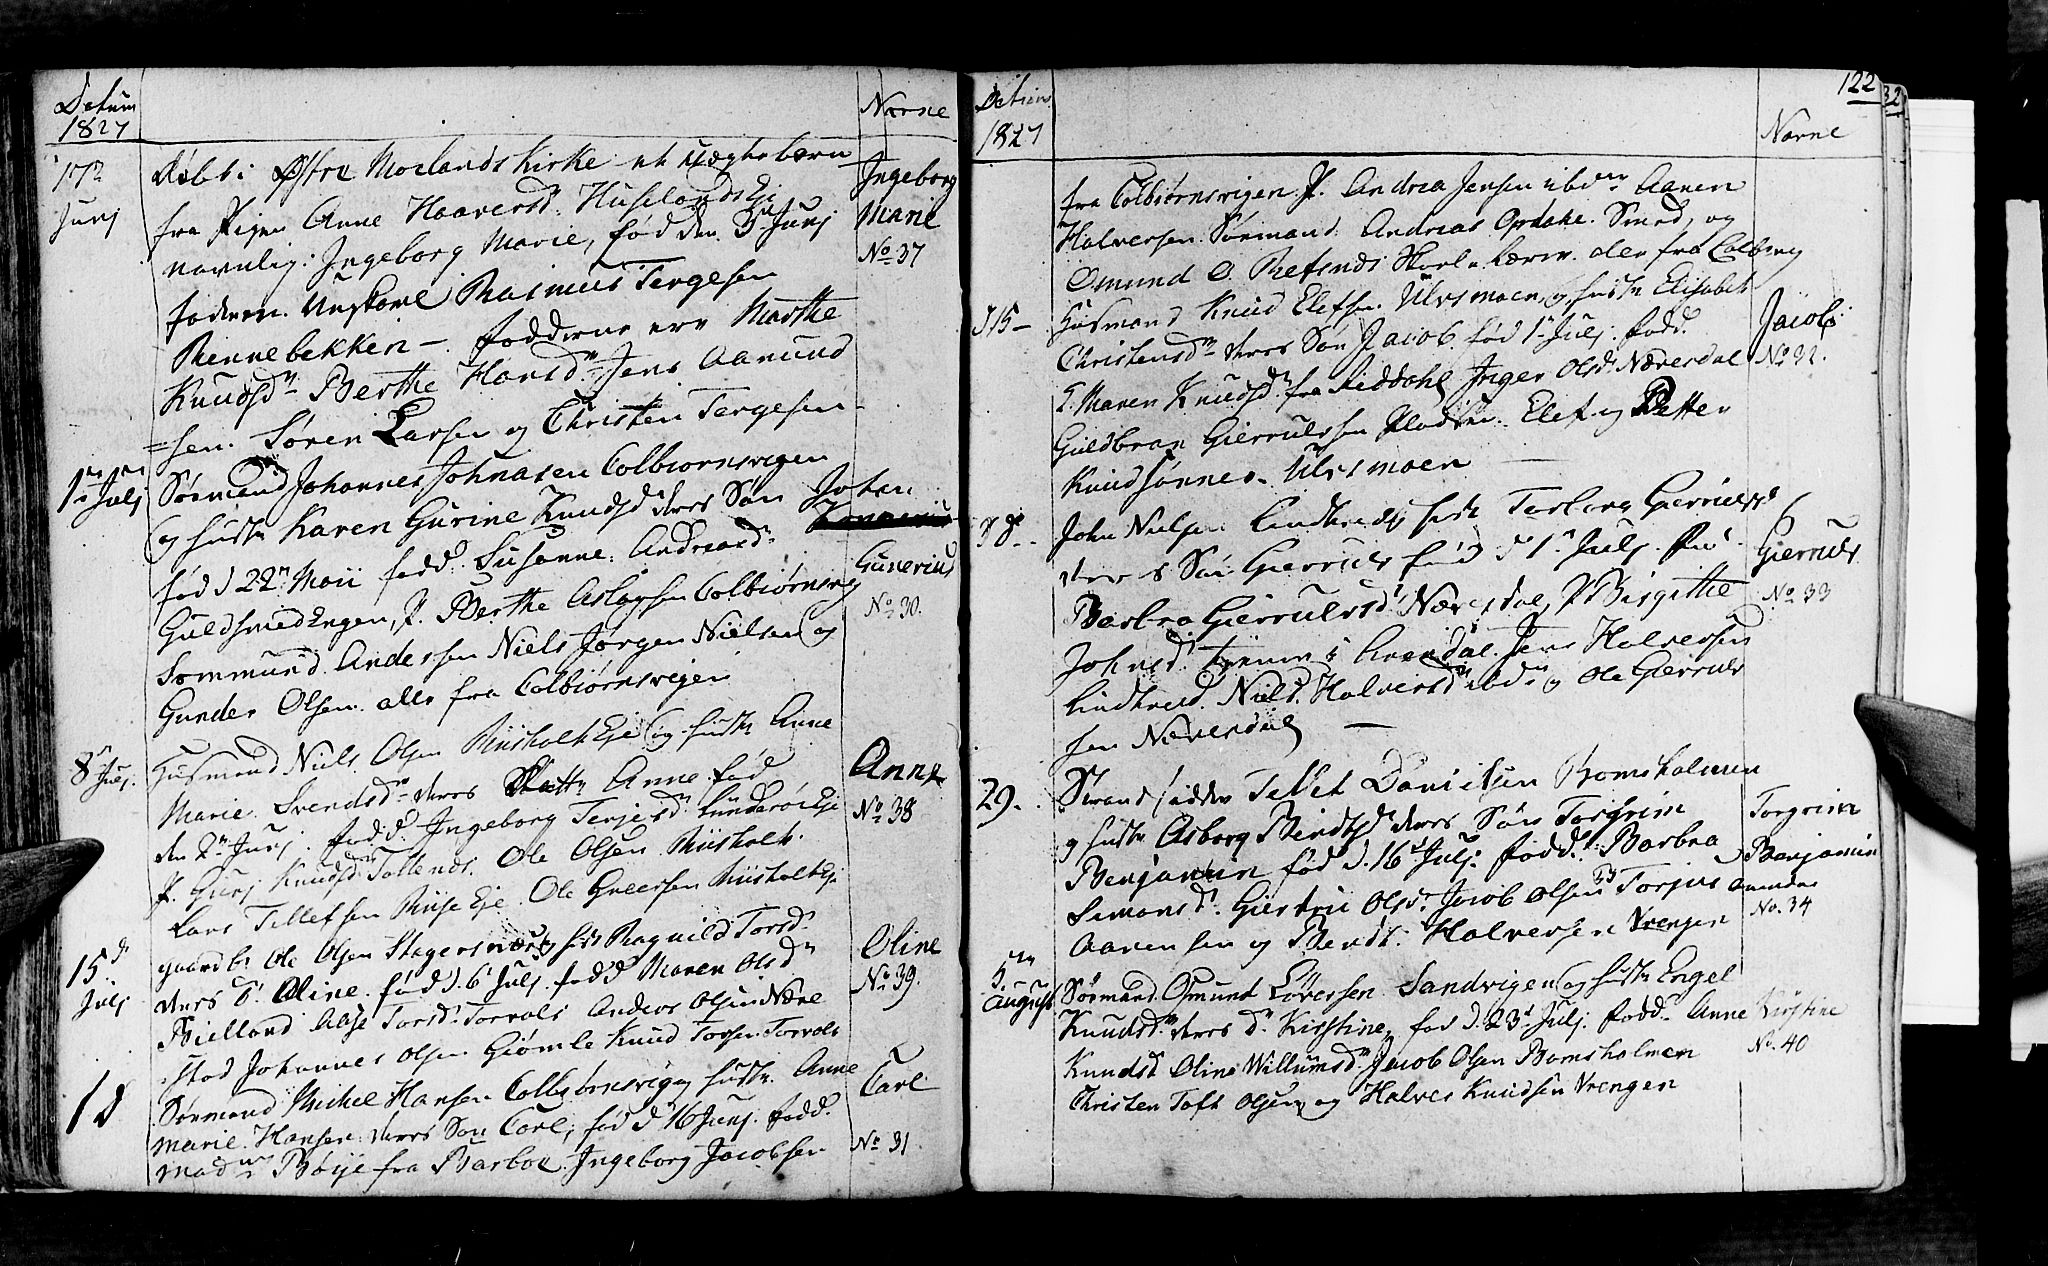 Datum
1827
Navne
17de
Junj
Döbt i Østre Molands Kirke et uægte barn
fra Pigen Anne Haaversd: Huseland Eje
navnlig: Ingeborg Marie, fød den 3 Junj
faderen. Ungkarl Rasmus Tergesen
Rennebekken –. fadderne ere Marthe
Knudsdn Berthe Hansdn Jens Aanund
=sen. Søren Larsen og Christen Tergesen
Ingeborg
Marie
No 37
1ste Julj
Sørmand Johannes Johnasen Colbiornsvigen
og hustr Karen Gurine Knudsd deres Søn
fød d 22n Maii fadd. Susanne Andreasdn
Guldsmedengen, P. Berthe Aslagsen Colbiørnsvig
Sommund Andersen Niels Jørgen Nielsen og
Gunder Olsen alle fra Colbiørnsvigen
Johan
Gunerius
No 30.
8de Julj.
Husmand Niels Olsen Riisholt Eje og hustr Anne
Marie Svendsdn deres Datter Anne fød
den 2n Junj. fadd: Ingeborg Terjesdn Lunderöe Eje
P. Gurj Knudsd Tollends. Ole Olsen Riisholt.
Lars Tellefsen Riise Eje. Ole Greersen Riisholt Eje
Anne
No 38
15d
Julj
gaardbr Ole Olsen Stagersnæs og hustr Ragnild Torsd.
deres D. Oline fød d. 6 Julj. fadd Maren Olsdn
Bielland Aase Torsdn Torvols Anders Olsen Næve
stad Johannes Olsen Giømle Knud Torsen Torvols
Oline
No 39.
1d
Sørmand Michel Hansen Colbiörnsvig og hustr. Anne
Marie Hansen deres Søn Carl, fød d 16 Junj. fadd.
Mad Böye fra Barboe Ingeborg Jacobsen
Carl
No 31
122
32
Datum
1827
Navne
fra Colbiørnsvigen P. Andrea Jensen ibdn Aanen
Halversen Sørmand Andreas Opdahl Smed, og
Osmund O. Refsnes Skol-lærer. alle fra Colbiørnsvig
d 15 –
Husmand Knud Elefsen Ulvsmoen, og hustr Elisabet
Christensdn deres Søn Jacob fød 1 Julj. fadd.
G. Maren Knudsdn fra Fiddahl Inger Olsdn Næversdal
Guldbran Gierrulssen Pladsen. Elef og Petter
Knudsønner Ulvsmoen –
Jacob
No 32.
d 8. –
John Nielsen Lindtveds hustr Torborg Gierrulsd
deres Søn Gierruls fød d 1n Julj. fad.
Barbra Gierrulsd Næversdal, P Birgitthe
Johnsd. i Arendal. Jens Halversen
Lindtved. Niels Halversd ibdn og Ole Gierruls
sen Næversdal –
Gierruls
No 33
29.
Strandsidder Tellef Danielsen Bomsholmen
og hustr Asborg Bendtsd deres Søn Torgrim
Benjamin fød d. 16d Julj. fadd. Barbra
Simonsd. Giertru Olsdr Jacob Olsen Torjus
Aanensen og Bendt Halversen Vrengen
Torgrim
Benjamin
No. 34
5te
August
Sørmand Osmunt Lövessen Sandvigen og hustr Engel
Knudsdn deres D. Kirstine, fød d. 23d Julj. fadd. Anne
Knudsd Oline Willumsd Jacob Olsen Bomsholmen
Christen Toft Olsen og Halver Knudsen Vrengen
Kirstine
No. 40